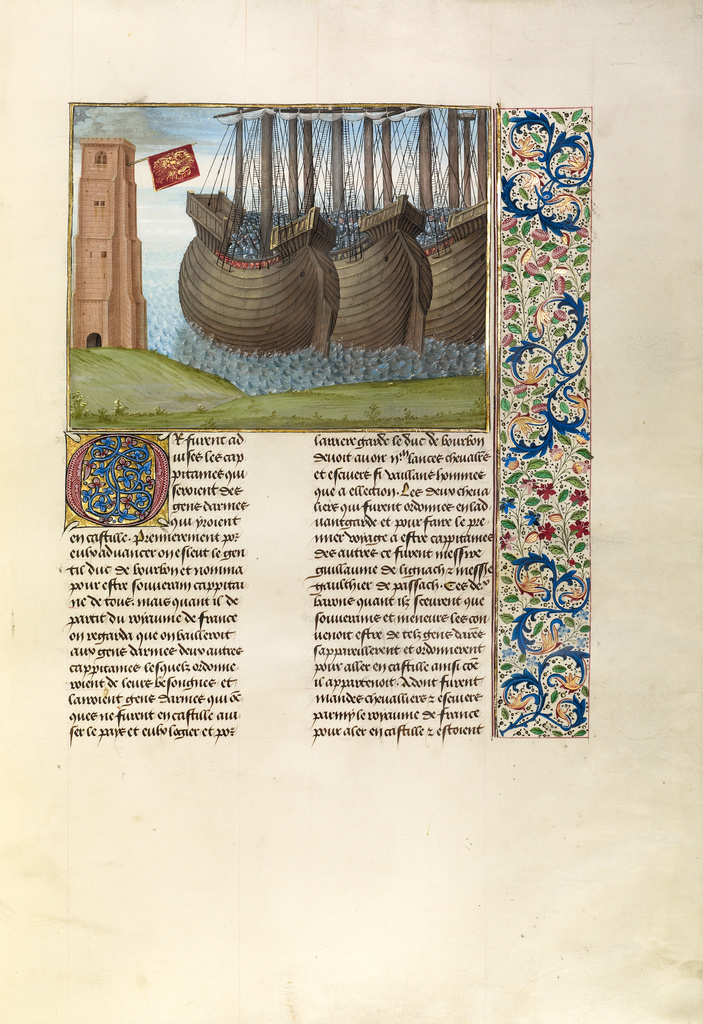 Or furent ad
uises les cap
pitaines qui
seroient des
gens darmes
qui yroient
en castille. Premierement por
eulx aduancer on eslent le gen
til duc de bourbon et nomma
pour estre souuerain cappitai
ne de tous. mais quant il de
partit du royaume de france
on regarda que on bailleroit
aux gens darmes deux autres
cappitaines lesquelz ordonne
roient de leurs besongnes et
lairoient gens darmes qui
ques ne furent en castille aui
ser le pays et eulx logier et por
larriere garde le duc de bourbon
deuoit auoir lances cheualrs
et escuiers si vaillans hommes
que a ellection. Les deux cheua
liers qui furent ordonnes en lad
uantgarde et pour faire le pre
mier voyage a estre cappitaines
des autres ce furent messire
guillaume de lignach z messire
gaulthier de passach. Ces
barons quant ilz sceurent que
souuerains et meneurs les con
uenoit estre de telz gens darmes
sappareillerent et ordonnerent
pour aller en castille ainsi
il appartenoit. Adont furent
mandes cheualliers z escuiers
parmy le royaume de france
pour aler en castille z estoient